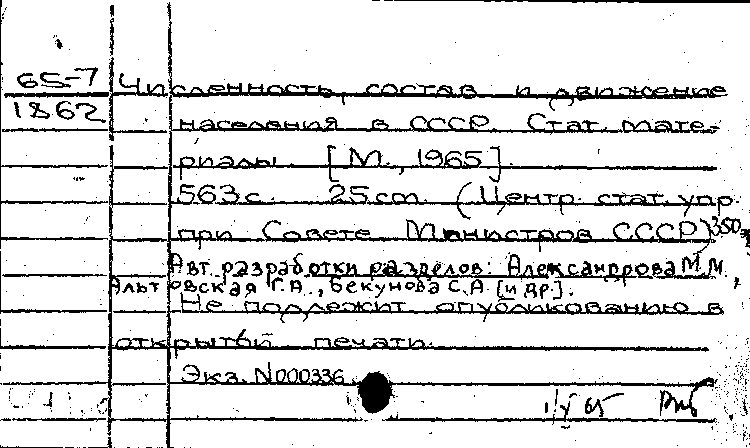 65-7 Численность, состав и движение
1862
населения в СССР. Стат. мате-
риалы. [М., 1965].
563 с. 25 см. (Центр. стат. упр.
при Совете Министров СССР) 350 э
Авт. разработки разделов: Александрова М.М.,
Альтовская Г.А., Бекунова С.А. [и др].
Не подлежит опубликованию в
открытой печати.
Экз. N000336
1/X 65